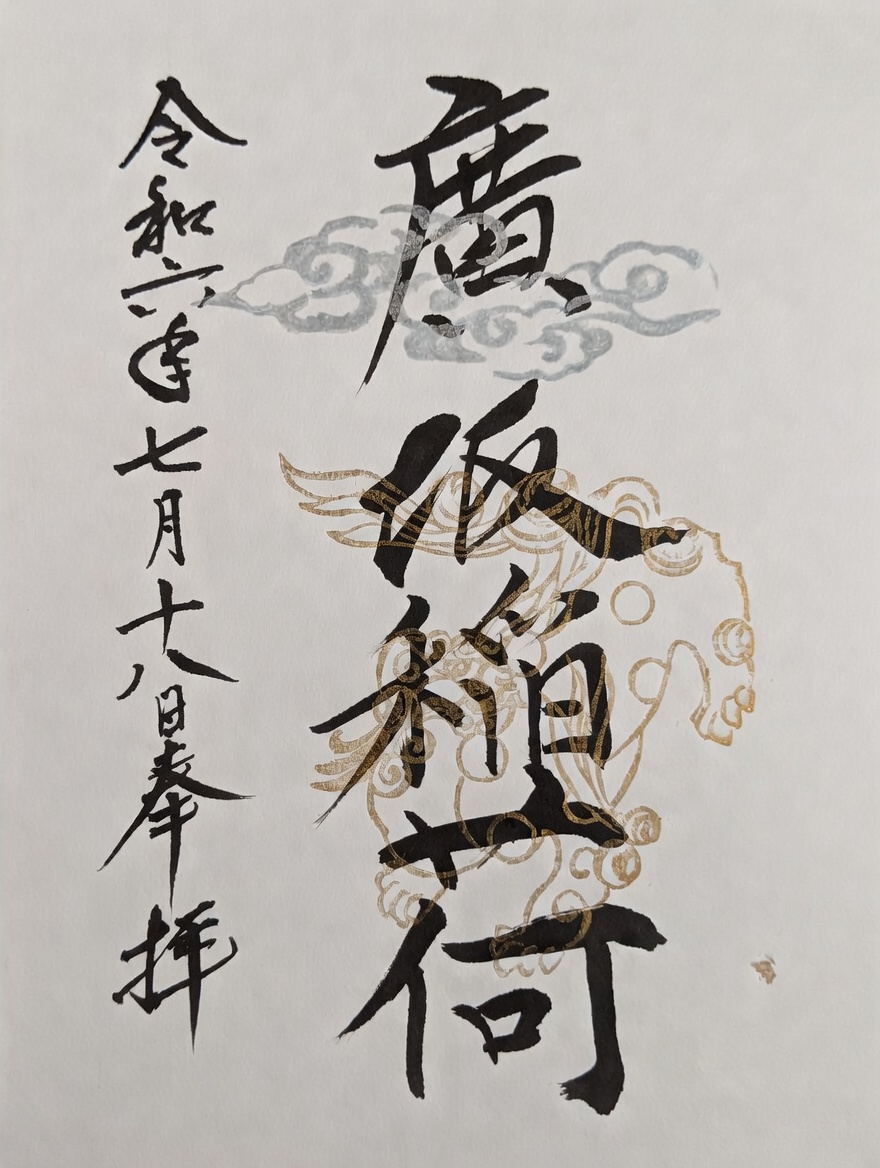 廣坂稲荷
令和六年七月十八日奉拝